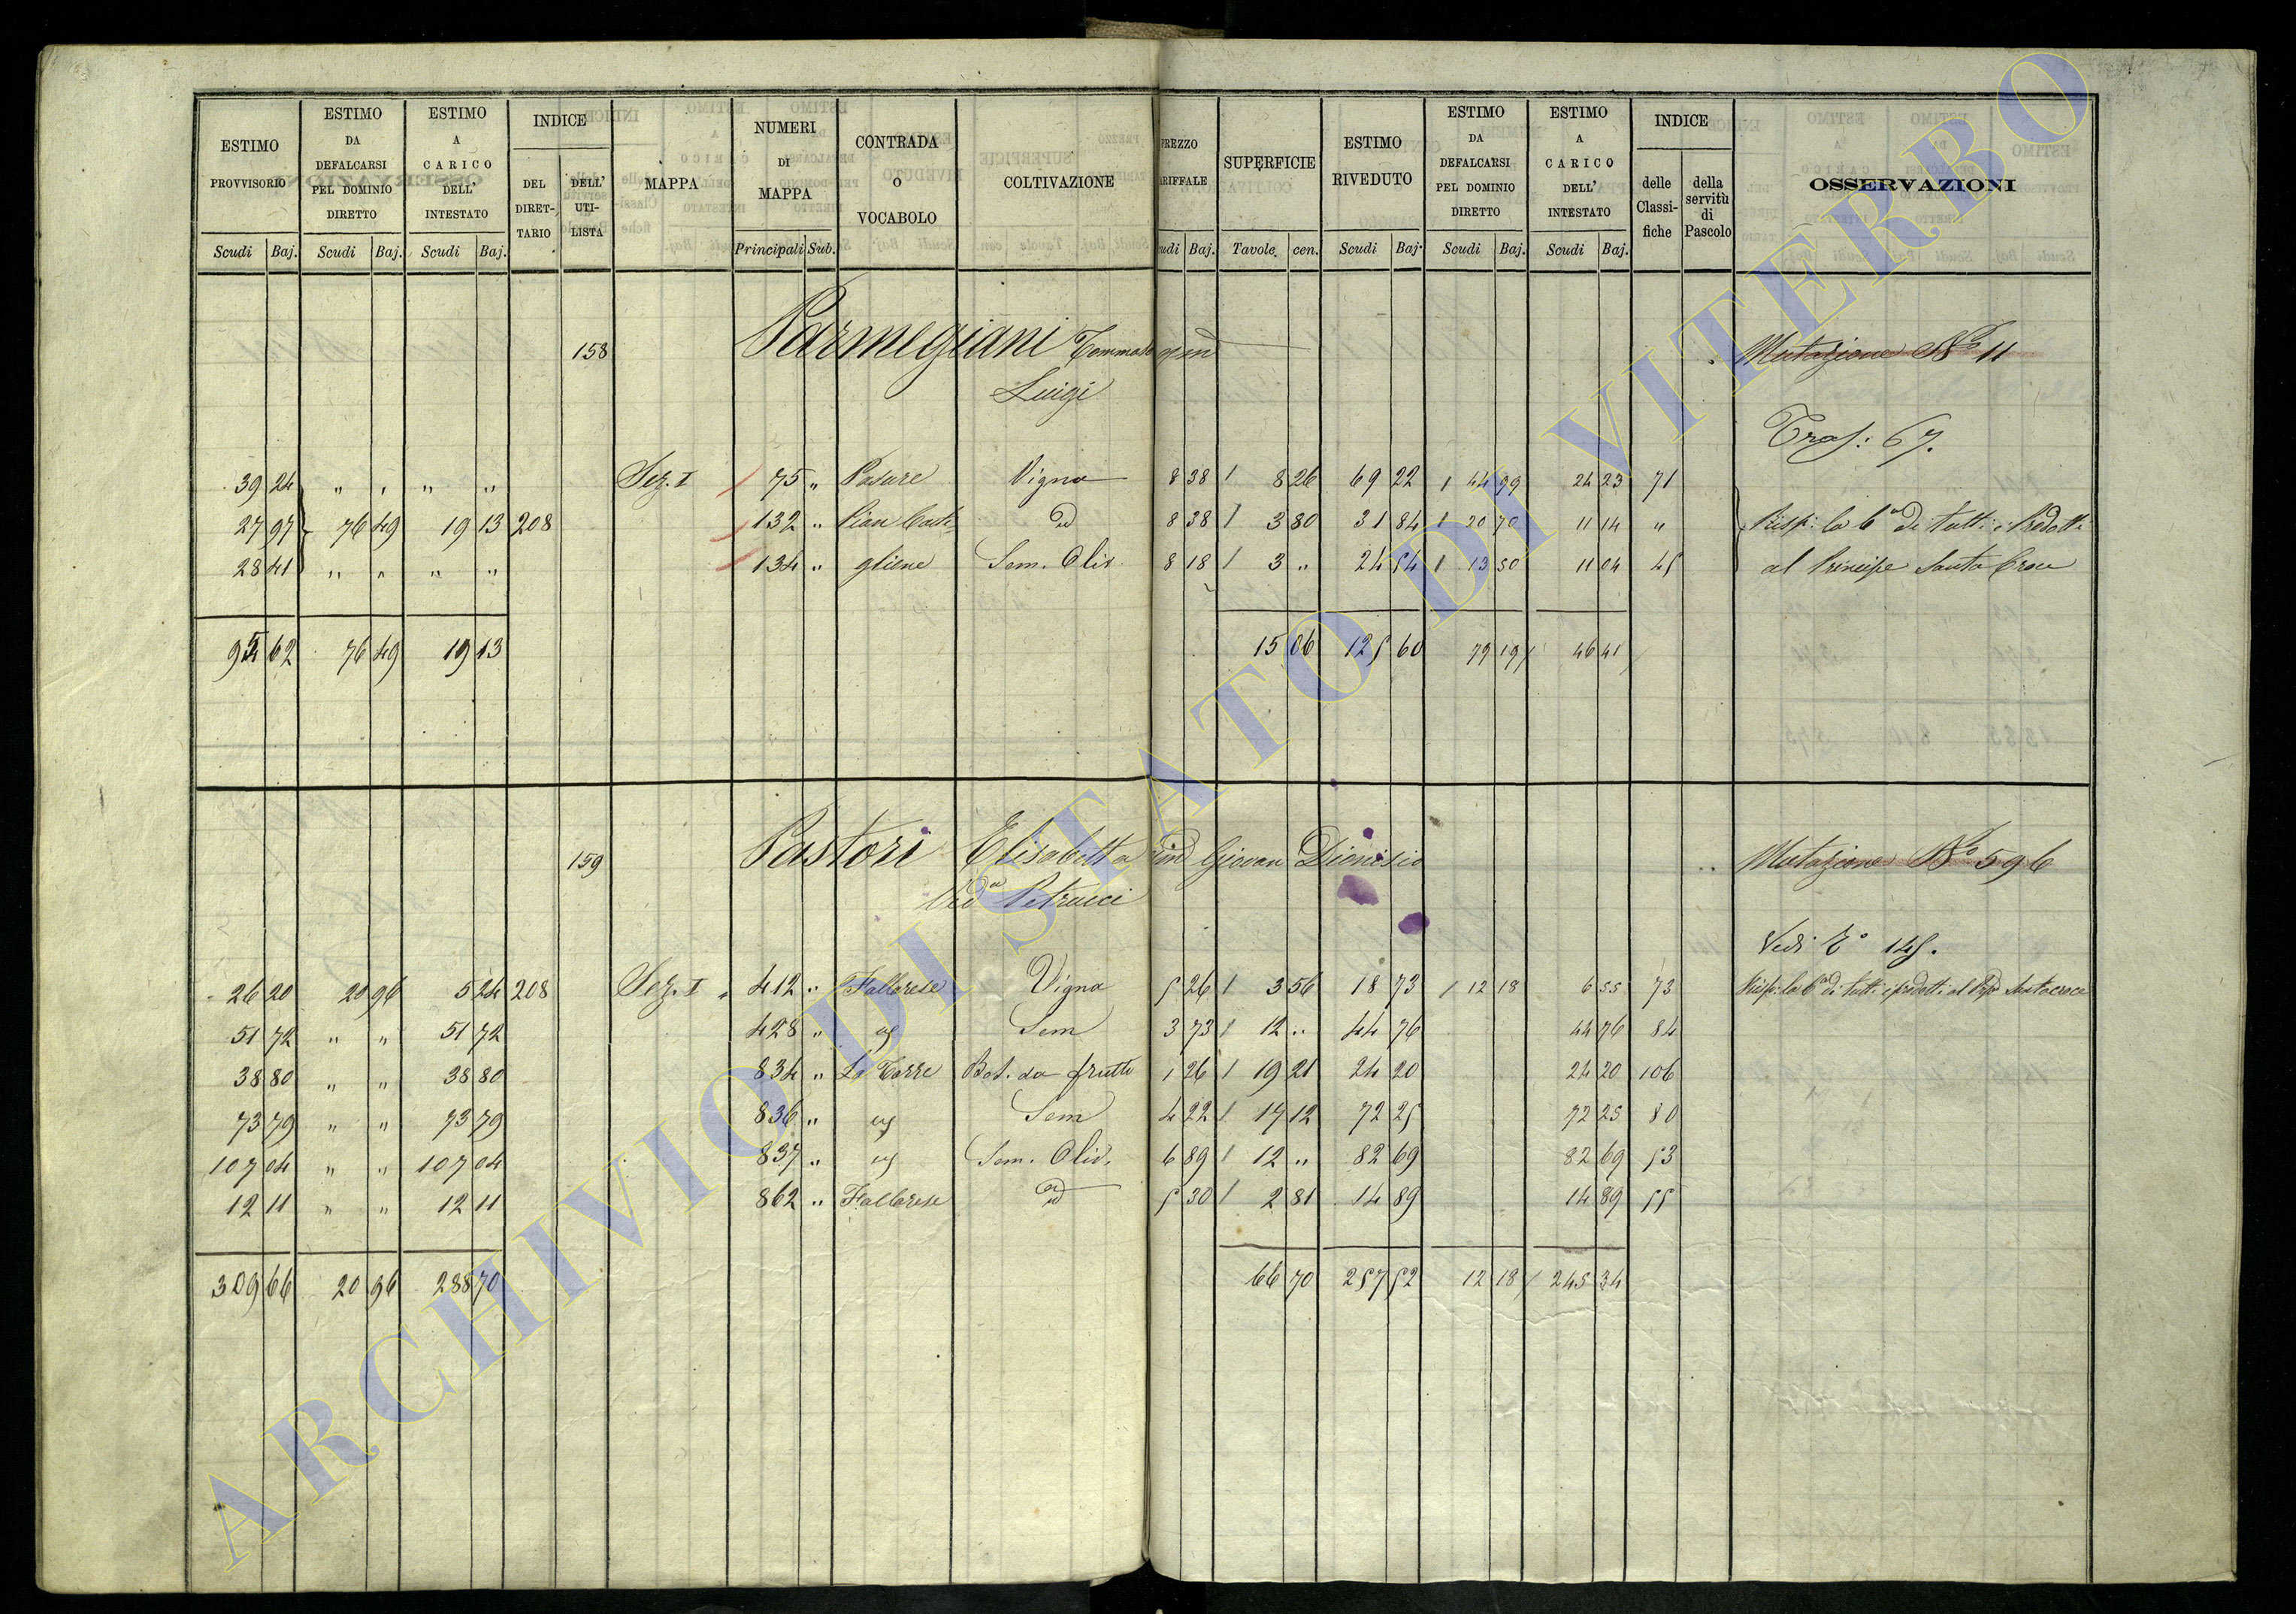 ESTIMO PROVVISORIO Scudi Baj.
ESTIMO DA DEFALCARSI PEL DOMINIO DIRETTO Scudi Baj.
ESTIMO A CARICO DELL' INTESTATO Scudi Baj.
INDICE DEL DIRET-TARIO DELL' UTI-LISTA
MAPPA
NUMERI DI MAPPA Principali Sub.
CONTRADA O VOCABOLO
COLTIVAZIONE
PREZZO TARIFFALE Scudi Baj.
SUPERFICIE Tavole cen.
ESTIMO RIVEDUTO Scudi Baj.
ESTIMO DA DEFALCARSI PEL DOMINIO DIRETTO Scudi Baj.
ESTIMO A CARICO DELL' INTESTATO Scudi Baj.
INDICE delle Classi-fiche della servitù di Pascolo
OSSERVAZIONI
158 Parmegiani Tommaso qm Mutazione No 11
Luigi
Tras: 67.
39 24 " " " " Sez. I 75 " Vigna 8 38 8 26 69 22 44 99 24 23 71
27 97 76 49 19 13 208 132 " Pian Casti= id 8 38 3 80 31 84 20 70 11 14 " Risp: la 6a di tutti i Prodotti
28 41 " " " " 134 " gliene Sem. Oliv. 8 18 3 " 24 54 13 50 11 04 45 al Principe Santa Croce
95 62 76 49 19 13 15 06 125 60 79 19 46 41
159 Pastori Elisabetta qm Giovan Dionisio Mutazione No 596
Veda Petrucci
Vedi To 145.
26 20 20 96 5 24 208 Sez. I 412 " Fallarese Vigna 5 26 3 56 18 73 12 18 6 55 73 Risp: la 6a di tutti i prodotti al Santacroce
51 72 " " 51 72 428 " Sem 3 73 12 " 44 76 44 76 84
38 80 " " 38 80 834 " La Torre Bos. da frutto 1 26 19 21 24 20 24 20 106
73 79 " " 73 79 836 " Sem 4 22 17 12 72 25 72 25 80
107 04 " " 107 04 837 " Sem. Oliv. 6 89 12 " 82 69 82 69 53
12 11 " " 12 11 862 " Fallarese id 5 30 2 81 14 89 14 89 55
309 66 20 96 288 70 66 70 257 52 12 18 245 34
ARCHIVIO DI STATO DI VITERBO